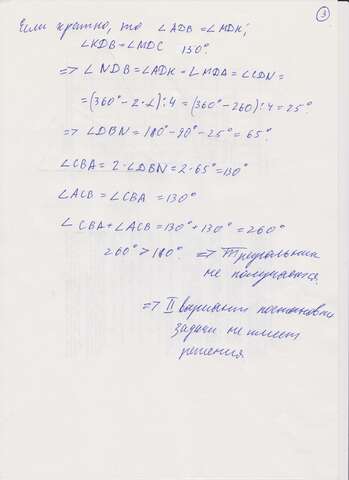 3
Если кратно, то ∠ADB = ∠MDK;
∠KDB = ∠MDC 130°.
=> ∠NDB = ∠ADK = ∠MDA = ∠CDN =
= (360° - 2·∠) : 4 = (360° - 260) : 4 = 25°
=> ∠DBN = 180° - 90° - 25° = 65°
∠CBA = 2·∠DBN = 2·65° = 130°
∠ACB = ∠CBA = 130°
∠CBA + ∠ACB = 130° + 130° = 260°
260° > 180° => Треугольник
не получается.
=> II вариант постановки
задачи не имеет
решения